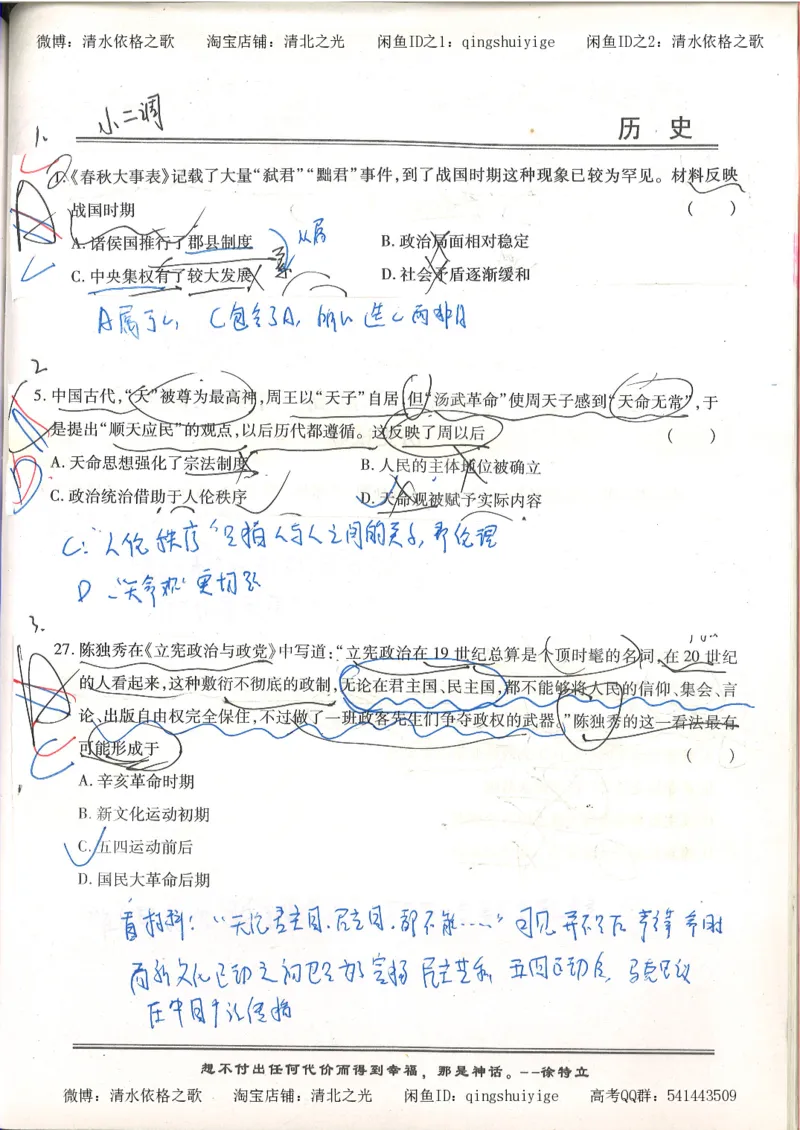 微博：清水依格之歌 淘宝店铺：清北之光 闲鱼ID之1：qingshuiyige 闲鱼ID之2：清水依格之歌
小二调
历 史
1.
1.《春秋大事表》记载了大量“弑君”“黜君”事件，到了战国时期这种现象已较为罕见。材料反映
战国时期 （ ）
A. 诸侯国推行了郡县制度 从属 B. 政治局面相对稳定
C. 中央集权有了较大发展 D. 社会矛盾逐渐缓和
A属于C， C包含了A， 所以选C
2
5. 中国古代，“天”被尊为最高神，周王以“天子”自居，但“汤武革命”使周天子感到“天命无常”，于
是提出“顺天应民”的观点，以后历代都遵循。这反映了周以后 （ ）
A. 天命思想强化了宗法制度 B. 人民的主体地位被确立
C. 政治统治借助于人伦秩序 D. 天命观被赋予实际内容
C：“人伦秩序”只指人与人之间的关系，即伦理
D “天命观”更切
3.
27. 陈独秀在《立宪政治与政党》中写道：“立宪政治在 19 世纪总算是个顶时髦的名词，在 20 世纪
的人看起来，这种敷衍不彻底的政制，无论在君主国、民主国，都不能够将人民的信仰、集会、言
论、出版自由权完全保住，不过做了一班政客先生们争夺政权的武器。”陈独秀的这一看法最有
可能形成于 （ ）
A. 辛亥革命时期
B. 新文化运动初期
C. 五四运动前后
D. 国民大革命后期
看材料：“无论君主国、民主国，都不能……”可见
在中国传播
想不付出任何代价而得到幸福，那是神话。--徐特立
微博：清水依格之歌 淘宝店铺：清北之光 闲鱼ID：qingshuiyige 高考QQ群：541443509